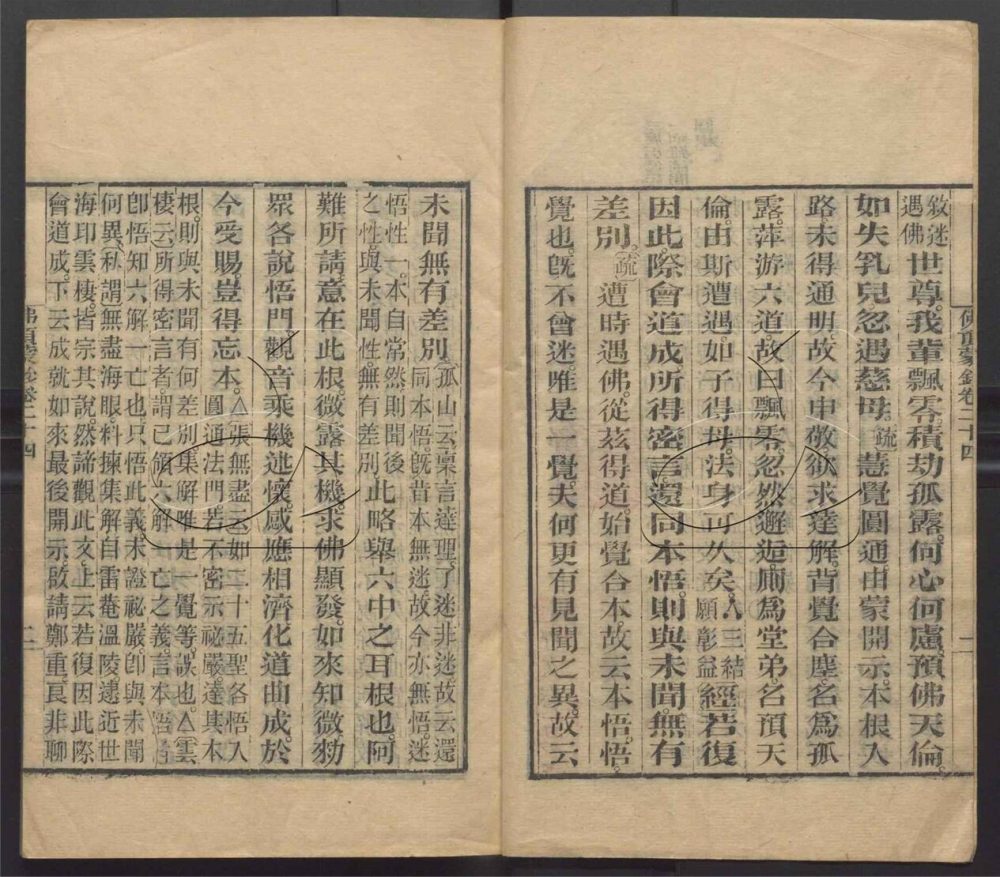 佛頂蒙鈔卷二十四
一
敘迷
遇佛
世尊我輩飄零積劫孤露何心何慮預佛天倫
如失乳兒忽遇慈母疏慧覺圓通由蒙開示本根入
路未得通明故今申敬欲求達解背覺合塵名為孤
露萍游六道故曰飄零忽然邂逅厠為堂弟名預天
倫由斯遭遇如子得母法身可久矣△三結
願彰益經若復
因此際會道成所得密言還同本悟則與未聞無有
差別疏遭時遇佛從茲得道始覺合本故云本悟悟
覺也既不會迷唯是一覺夫何更有見聞之異故云
未聞無有差別孤山云稟言達理了迷非迷故云還
同本悟既昔本無迷故今亦無悟迷
悟性一本自常然則聞後
之性與未聞性無有差別此略舉六中之耳根也阿
難所請意在此根微露其機求佛顯發如來知微勑
眾各說悟門觀音乘機述懷感應相濟化道曲成於
今受賜豈得忘本△張無盡云如二十五聖各悟入
圓通法門若不密示祕嚴達其本
根則與未聞有何差別集解唯是一覺等誤也△雲
棲云所得密言者謂已領六解一亡之義言本悟者
卽悟知六解一亡也只悟此義未證祕嚴卽與未聞
何異私謂無盡海眼料揀集解自雷菴溫陵逮近世
海印雲棲皆宗其說然諦觀此文上云若復因此際
會道成下云成就如來最後開示啟請鄭重良非聊
佛頂蒙鈔卷二十四
二